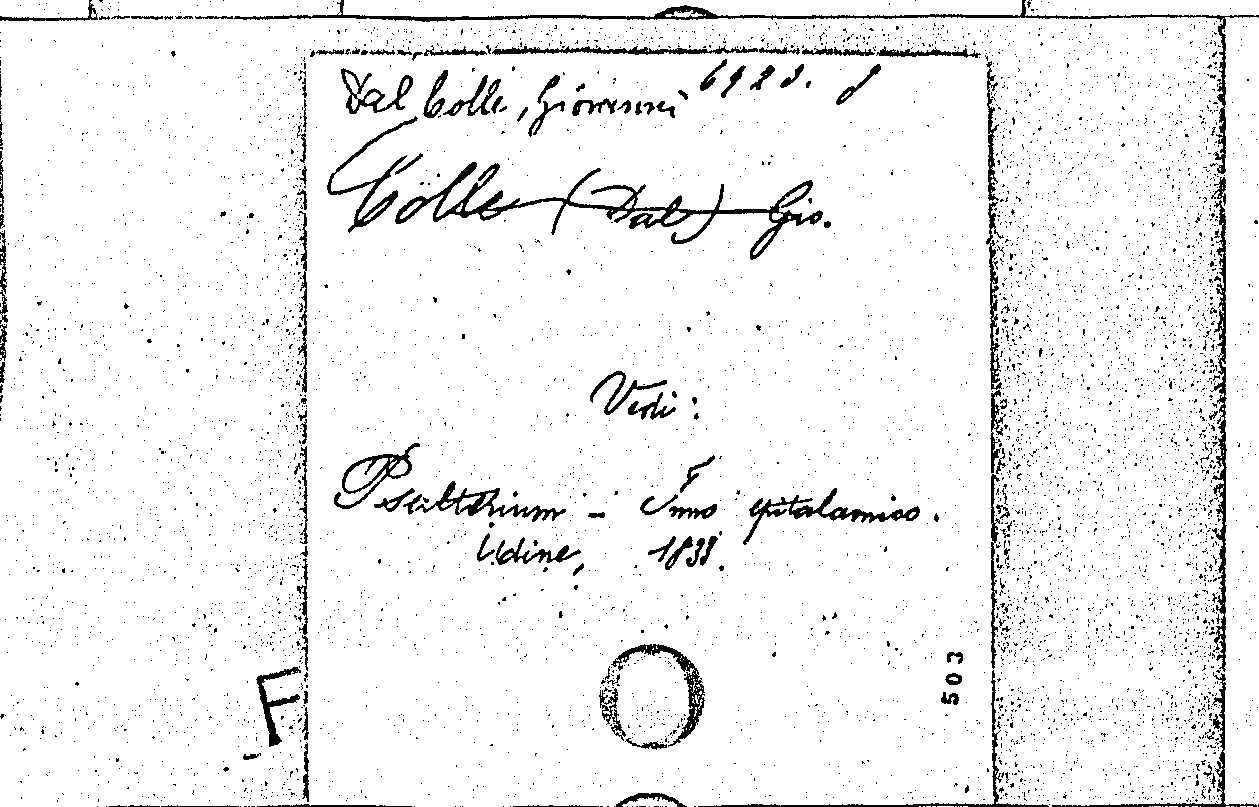 Dal Colle, Giovanni 6923. 8
Colle (Dal) Gio.
Vedi:
Psalterium - Inno epitalamico.
Udine, 1833.
503
F